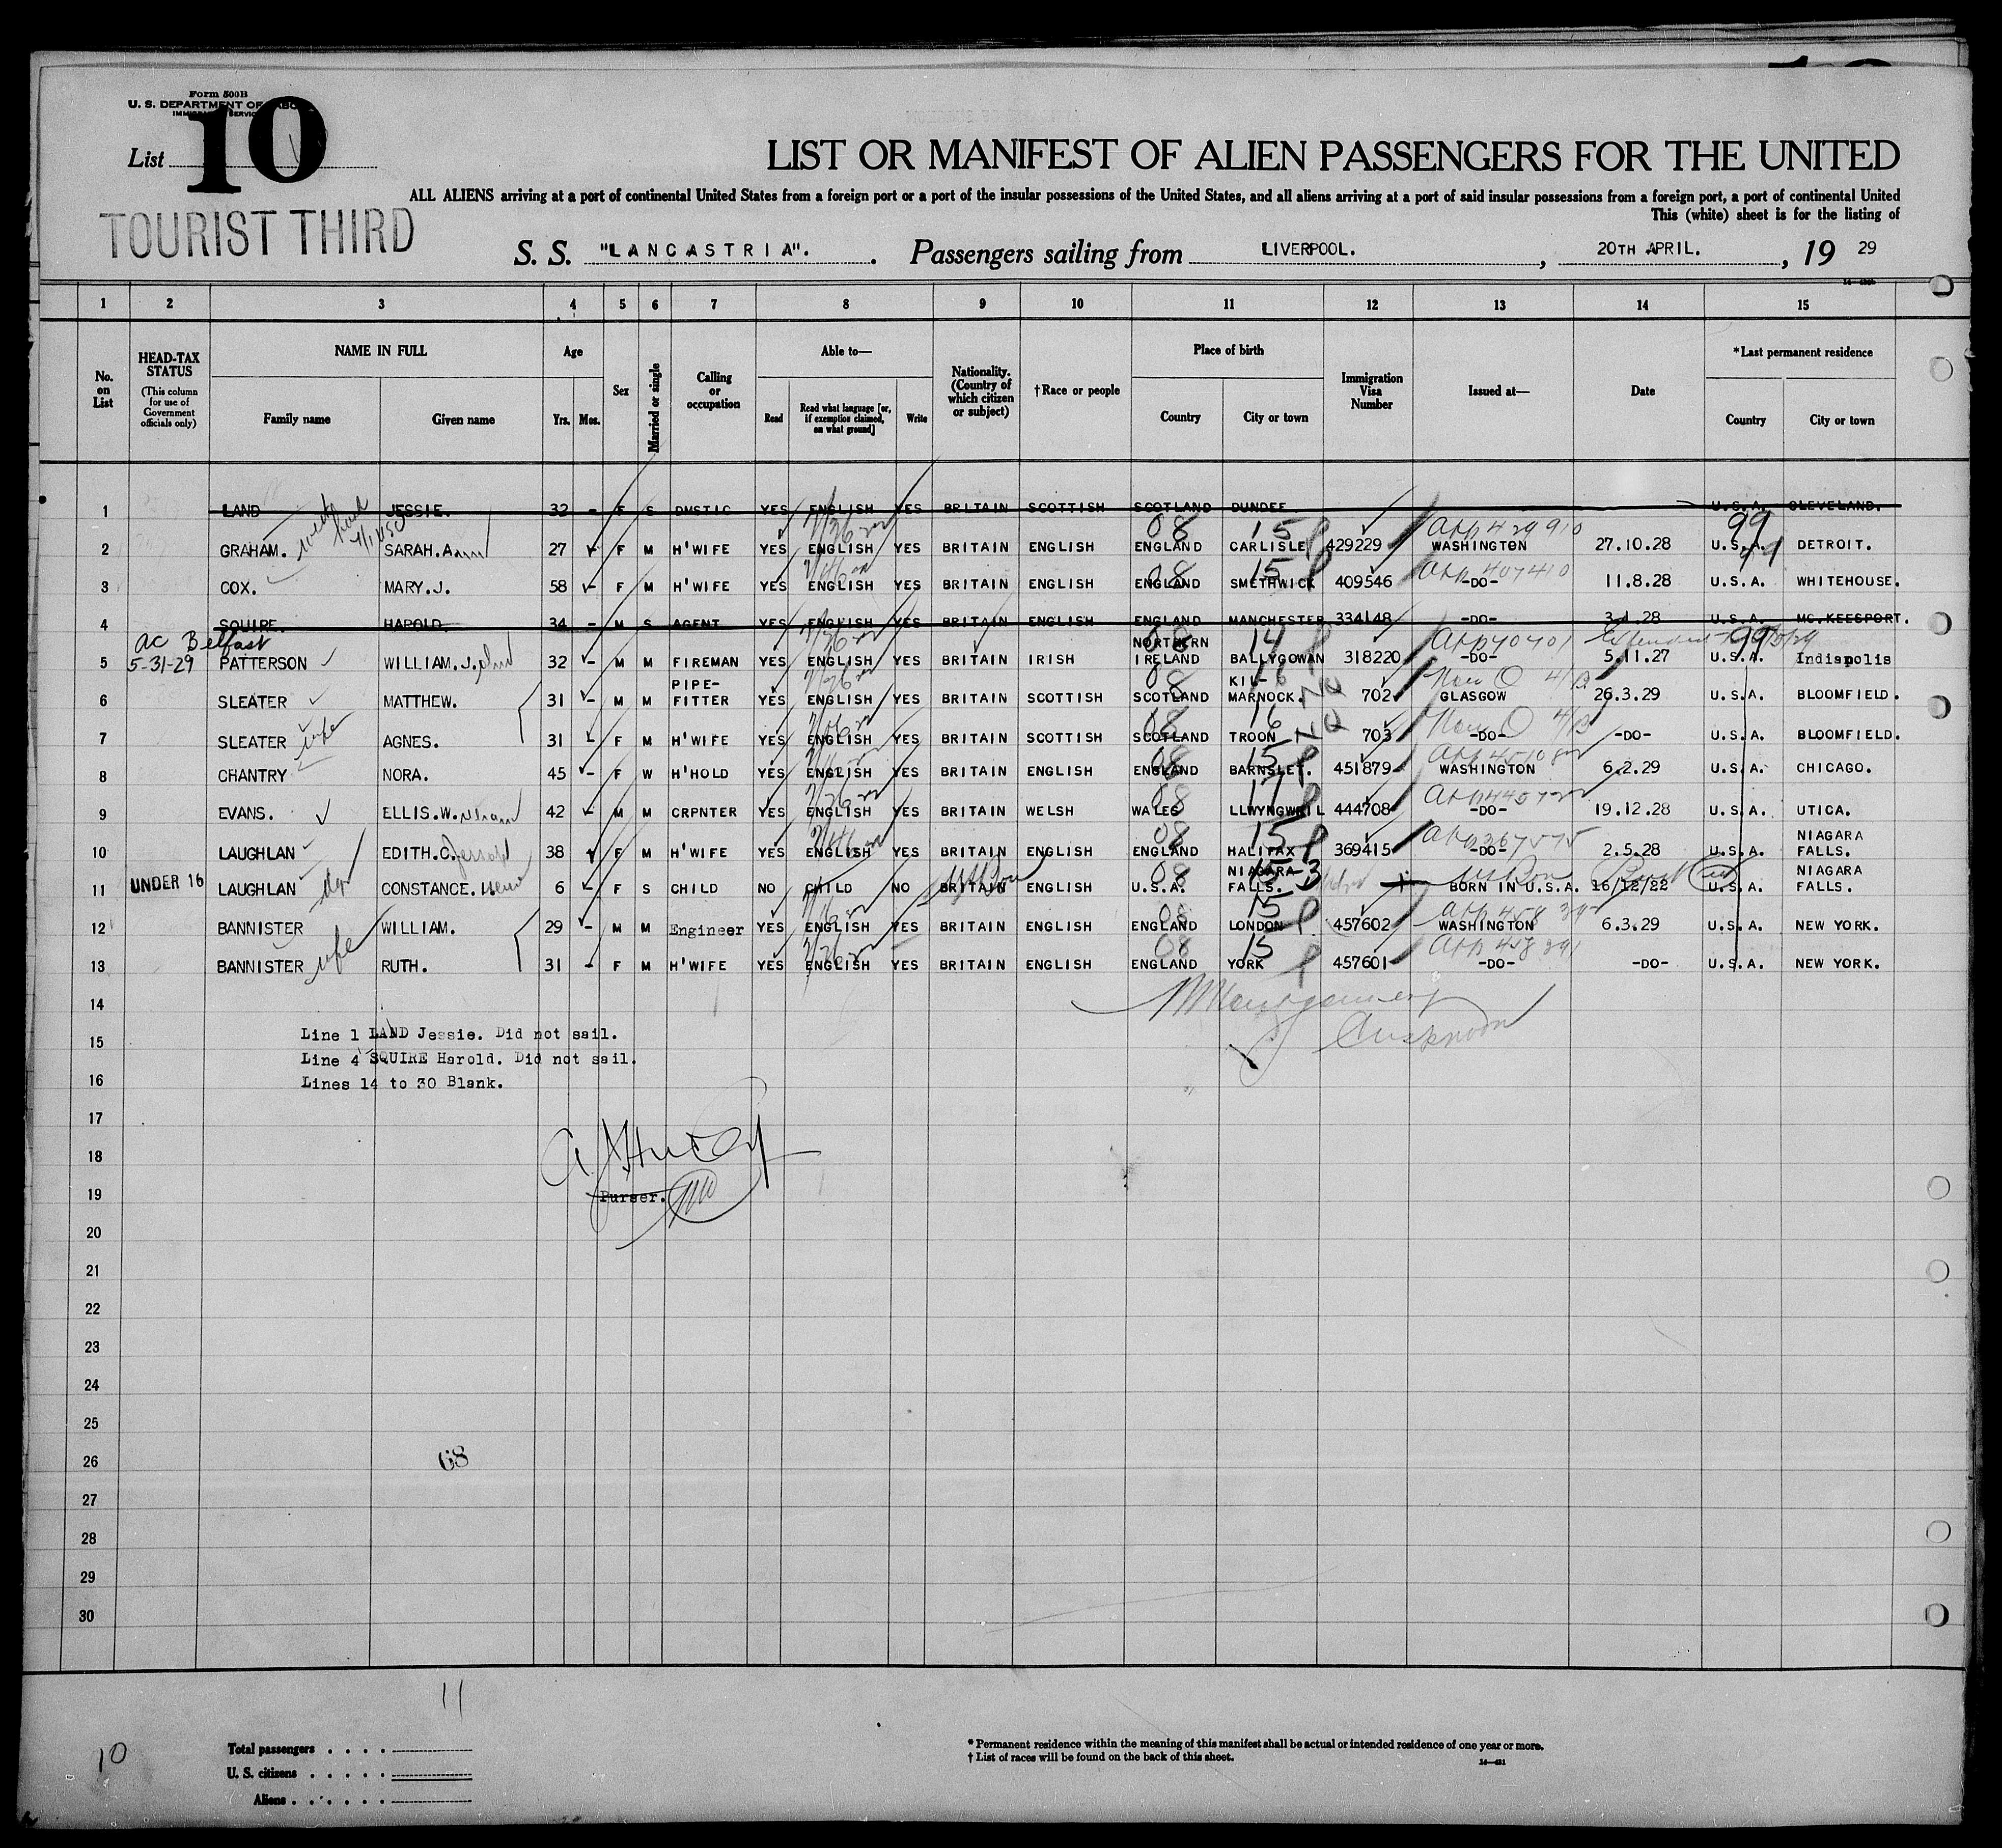 Form 500B
U. S. DEPARTMENT OF LABOR
List 10
LIST OR MANIFEST OF ALIEN PASSENGERS FOR THE UNITED
ALL ALIENS arriving at a port of continental United States from a foreign port or a port of the insular possessions of the United States, and all aliens arriving at a port of said insular possessions from a foreign port, a port of continental United
This (white) sheet is for the listing of
TOURIST THIRD
S. S. "LANCASTRIA". Passengers sailing from LIVERPOOL. , 20TH APRIL. , 19 29
1 2 3 4 5 6 7 8 9 10 11 12 13 14 15
No. on List
HEAD-TAX STATUS
(This column for use of Government officials only)
NAME IN FULL
Family name Given name
Age
Yrs. Mos.
Sex
Married or single
Calling or occupation
Able to—
Read Read what language [or, if exemption claimed, on what ground] Write
Nationality. (Country of which citizen or subject)
†Race or people
Place of birth
Country City or town
Immigration Visa Number
Issued at—
Date
*Last permanent residence
Country City or town
1 LAND JESSIE. 32 - F S DMSTIC YES ENGLISH YES BRITAIN SCOTTISH SCOTLAND DUNDEE U.S.A. CLEVELAND.
2 GRAHAM. SARAH.Ann 27 - F M H'WIFE YES ENGLISH YES BRITAIN ENGLISH ENGLAND CARLISLE 429229 WASHINGTON 27.10.28 U.S.A. DETROIT.
3 COX. MARY.J. 58 - F M H'WIFE YES ENGLISH YES BRITAIN ENGLISH ENGLAND SMETHWICK 409546 -DO- 11.8.28 U.S.A. WHITEHOUSE.
4 SQUIRE. HAROLD. 34 - M S AGENT YES ENGLISH YES BRITAIN ENGLISH ENGLAND MANCHESTER 334148 -DO- 3.1.28 U.S.A. MC.KEESPORT.
ac Belfast
5-31-29
5 PATTERSON WILLIAM.J. 32 - M M FIREMAN YES ENGLISH YES BRITAIN IRISH NORTHERN IRELAND BALLYGOWAN 318220 -DO- 5.11.27 U.S.A. Indiapolis
6 SLEATER MATTHEW. 31 - M M PIPE-FITTER YES ENGLISH YES BRITAIN SCOTTISH SCOTLAND KIL-MARNOCK. 702 GLASGOW 26.3.29 U.S.A. BLOOMFIELD.
7 SLEATER wife AGNES. 31 - F M H'WIFE YES ENGLISH YES BRITAIN SCOTTISH SCOTLAND TROON 703 -DO- -DO- U.S.A. BLOOMFIELD.
8 CHANTRY NORA. 45 - F W H'HOLD YES ENGLISH YES BRITAIN ENGLISH ENGLAND BARNSLEY. 451879 WASHINGTON 6.2.29 U.S.A. CHICAGO.
9 EVANS. ELLIS.W. 42 - M M CRPNTER YES ENGLISH YES BRITAIN WELSH WALES LLWYNGWRIL 444708 -DO- 19.12.28 U.S.A. UTICA.
10 LAUGHLAN EDITH.C. 38 F M H'WIFE YES ENGLISH YES BRITAIN ENGLISH ENGLAND HALIFAX 369415 -DO- 2.5.28 U.S.A. NIAGARA FALLS.
11 UNDER 16 LAUGHLAN CONSTANCE. 6 - F S CHILD NO CHILD NO BRITAIN ENGLISH U.S.A. NIAGARA FALLS. BORN IN U.S.A. 16/12/22 U.S.A. NIAGARA FALLS.
12 BANNISTER WILLIAM. 29 - M M Engineer YES ENGLISH YES BRITAIN ENGLISH ENGLAND LONDON 457602 WASHINGTON 6.3.29 U.S.A. NEW YORK.
13 BANNISTER wife RUTH. 31 - F M H'WIFE YES ENGLISH YES BRITAIN ENGLISH ENGLAND YORK 457601 -DO- -DO- U.S.A. NEW YORK.
14
15
16
Line 1 LAND Jessie. Did not sail.
Line 4 SQUIRE Harold. Did not sail.
Lines 14 to 30 Blank.
17
18
19
Purser.
20
21
22
23
24
25
26
68
27
28
29
30
11
10
Total passengers
U. S. citizens
Aliens
* Permanent residence within the meaning of this manifest shall be actual or intended residence of one year or more.
† List of races will be found on the back of this sheet.